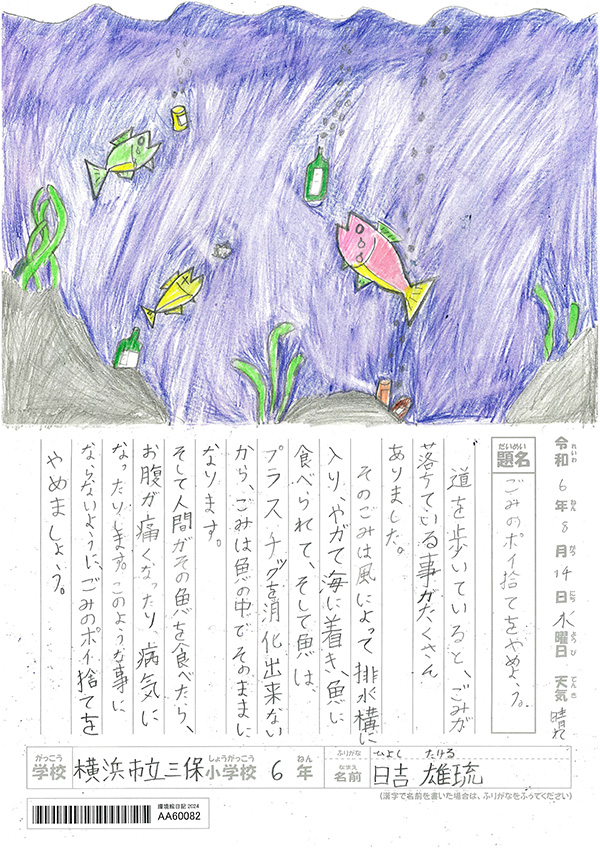 令和6年8月14日水曜日 天気 晴れ
れいわ ねん がつ にち ようび てんき
だいめい
題名 ごみのポイ捨てをやめよう。
道を歩いていると、ごみが
落ちている事がたくさん
ありました。
そのごみは風によって排水構に
入り、やがて海に着き、魚に
食べられて、そして魚は、
プラスチックを消化出来ない
から、ごみは魚の中でそのままに
なります。
そして人間がその魚を食べたら、
お腹が痛くなったり、病気に
なったりします。このような事に
ならないように、ごみのポイ捨てを
やめましょう。
がっこう しょうがっこう ねん
学校 横浜市立三保小学校 6年
ふりがな ひよし たける
なまえ
名前 日吉 雄琉
(漢字で名前を書いた場合は、ふりがなをふってください)
環境絵日記 2024
AA60082